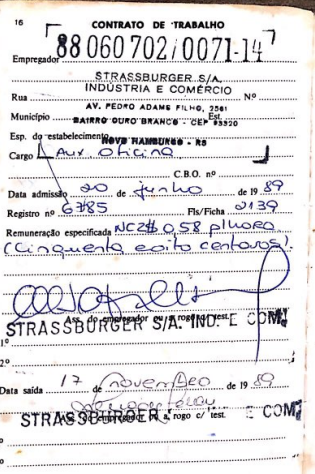 16 CONTRATO DE TRABALHO
88 060 702/0071-14
Empregador
STRASSBURGER S/A.
INDÚSTRIA E COMÉRCIO
Rua Nº
AV. PEDRO ADAMS FILHO, 2581
Município Est.
BAIRRO OURO BRANCO - CEP 93320
Esp. do estabelecimento
NOVO HAMBURGO - RS
Cargo Aux. Oficina
C.B.O. nº
Data admissão 20 de junho de 1989
Registro nº 6785 Fls/Ficha 2139
Remuneração especificada NCZ$ 0,58 p/hora
(Cinquenta e oito centavos).
Ass. do empregador ou a rogo c/ test.
STRASSBURGER S/A. IND. E COM.
1º
2º
Data saída 17 de novembro de 1989
STRASSBURGER E COM.
Ass. do empregador ou a rogo c/ test.